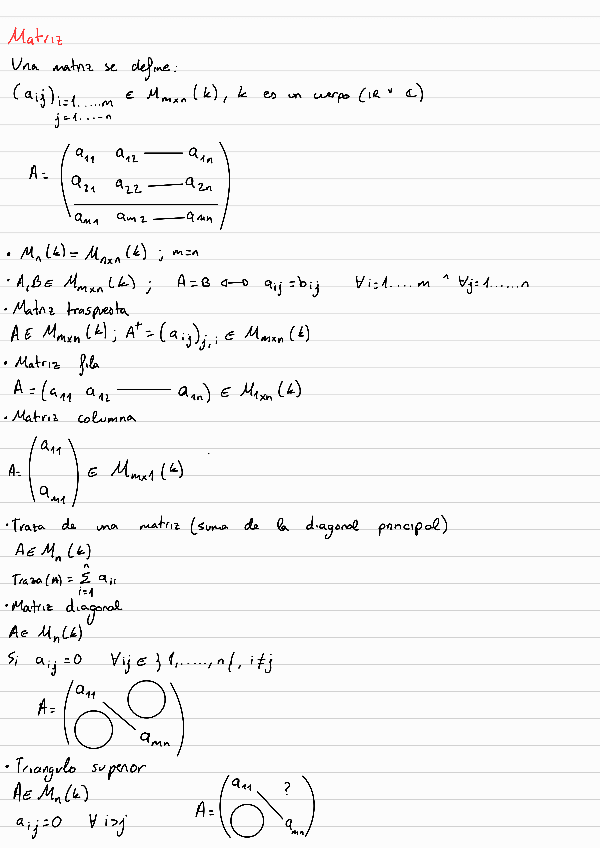 Matriz
Una matriz se define:
(aij) i=1.....m j=1....n ∈ Mmxn(k), k es un cuerpo (IR v C)
A= (a11 a12 — a1n
a21 a22 — a2n
am1 am2 — amn)
• Mn(k)=Mnxn(k) ; m=n
• A,B∈ Mmxn(k) ; A=B ↔ aij=bij ∀i=1....m ^ ∀j=1......n
• Matriz traspuesta
A∈ Mmxn(k); At=(aij)j,i ∈ Mmxn(k)
• Matriz fila
A=(a11 a12 — a1n) ∈ M1xn(k)
• Matriz columna
A= (a11
am1) ∈ Mmx1(k)
• Traza de una matriz (suma de la diagonal principal)
A∈ Mn(k)
Traza(A)= n Σ i=1 aii
• Matriz diagonal
A∈ Mn(k)
Si aij=0 ∀ij∈ }1,.....,n{, i≠j
A= (a11
amn)
• Triangulo superior
A∈ Mn(k)
aij=0 ∀ i>j
A= (a11 ?
amn)